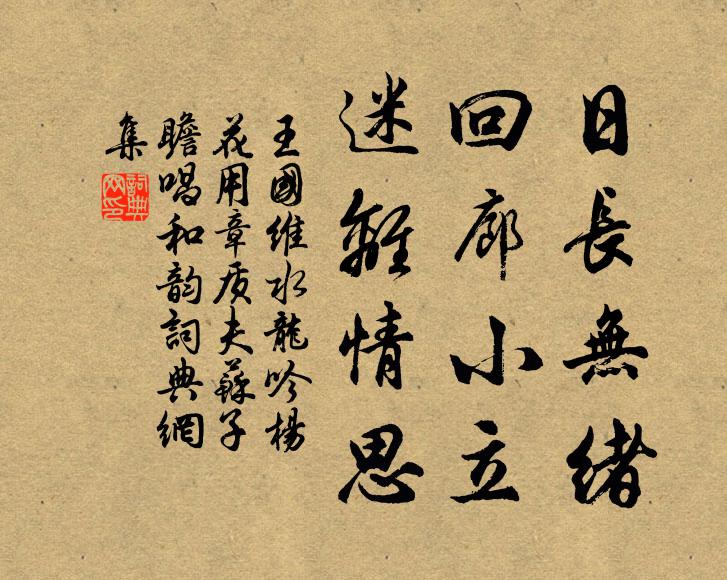 日長無緒
回廊小立
迷離情思
王國維水龍吟楊
花用章质夫蘇子
瞻唱和韵詞典網
集
詞典網印